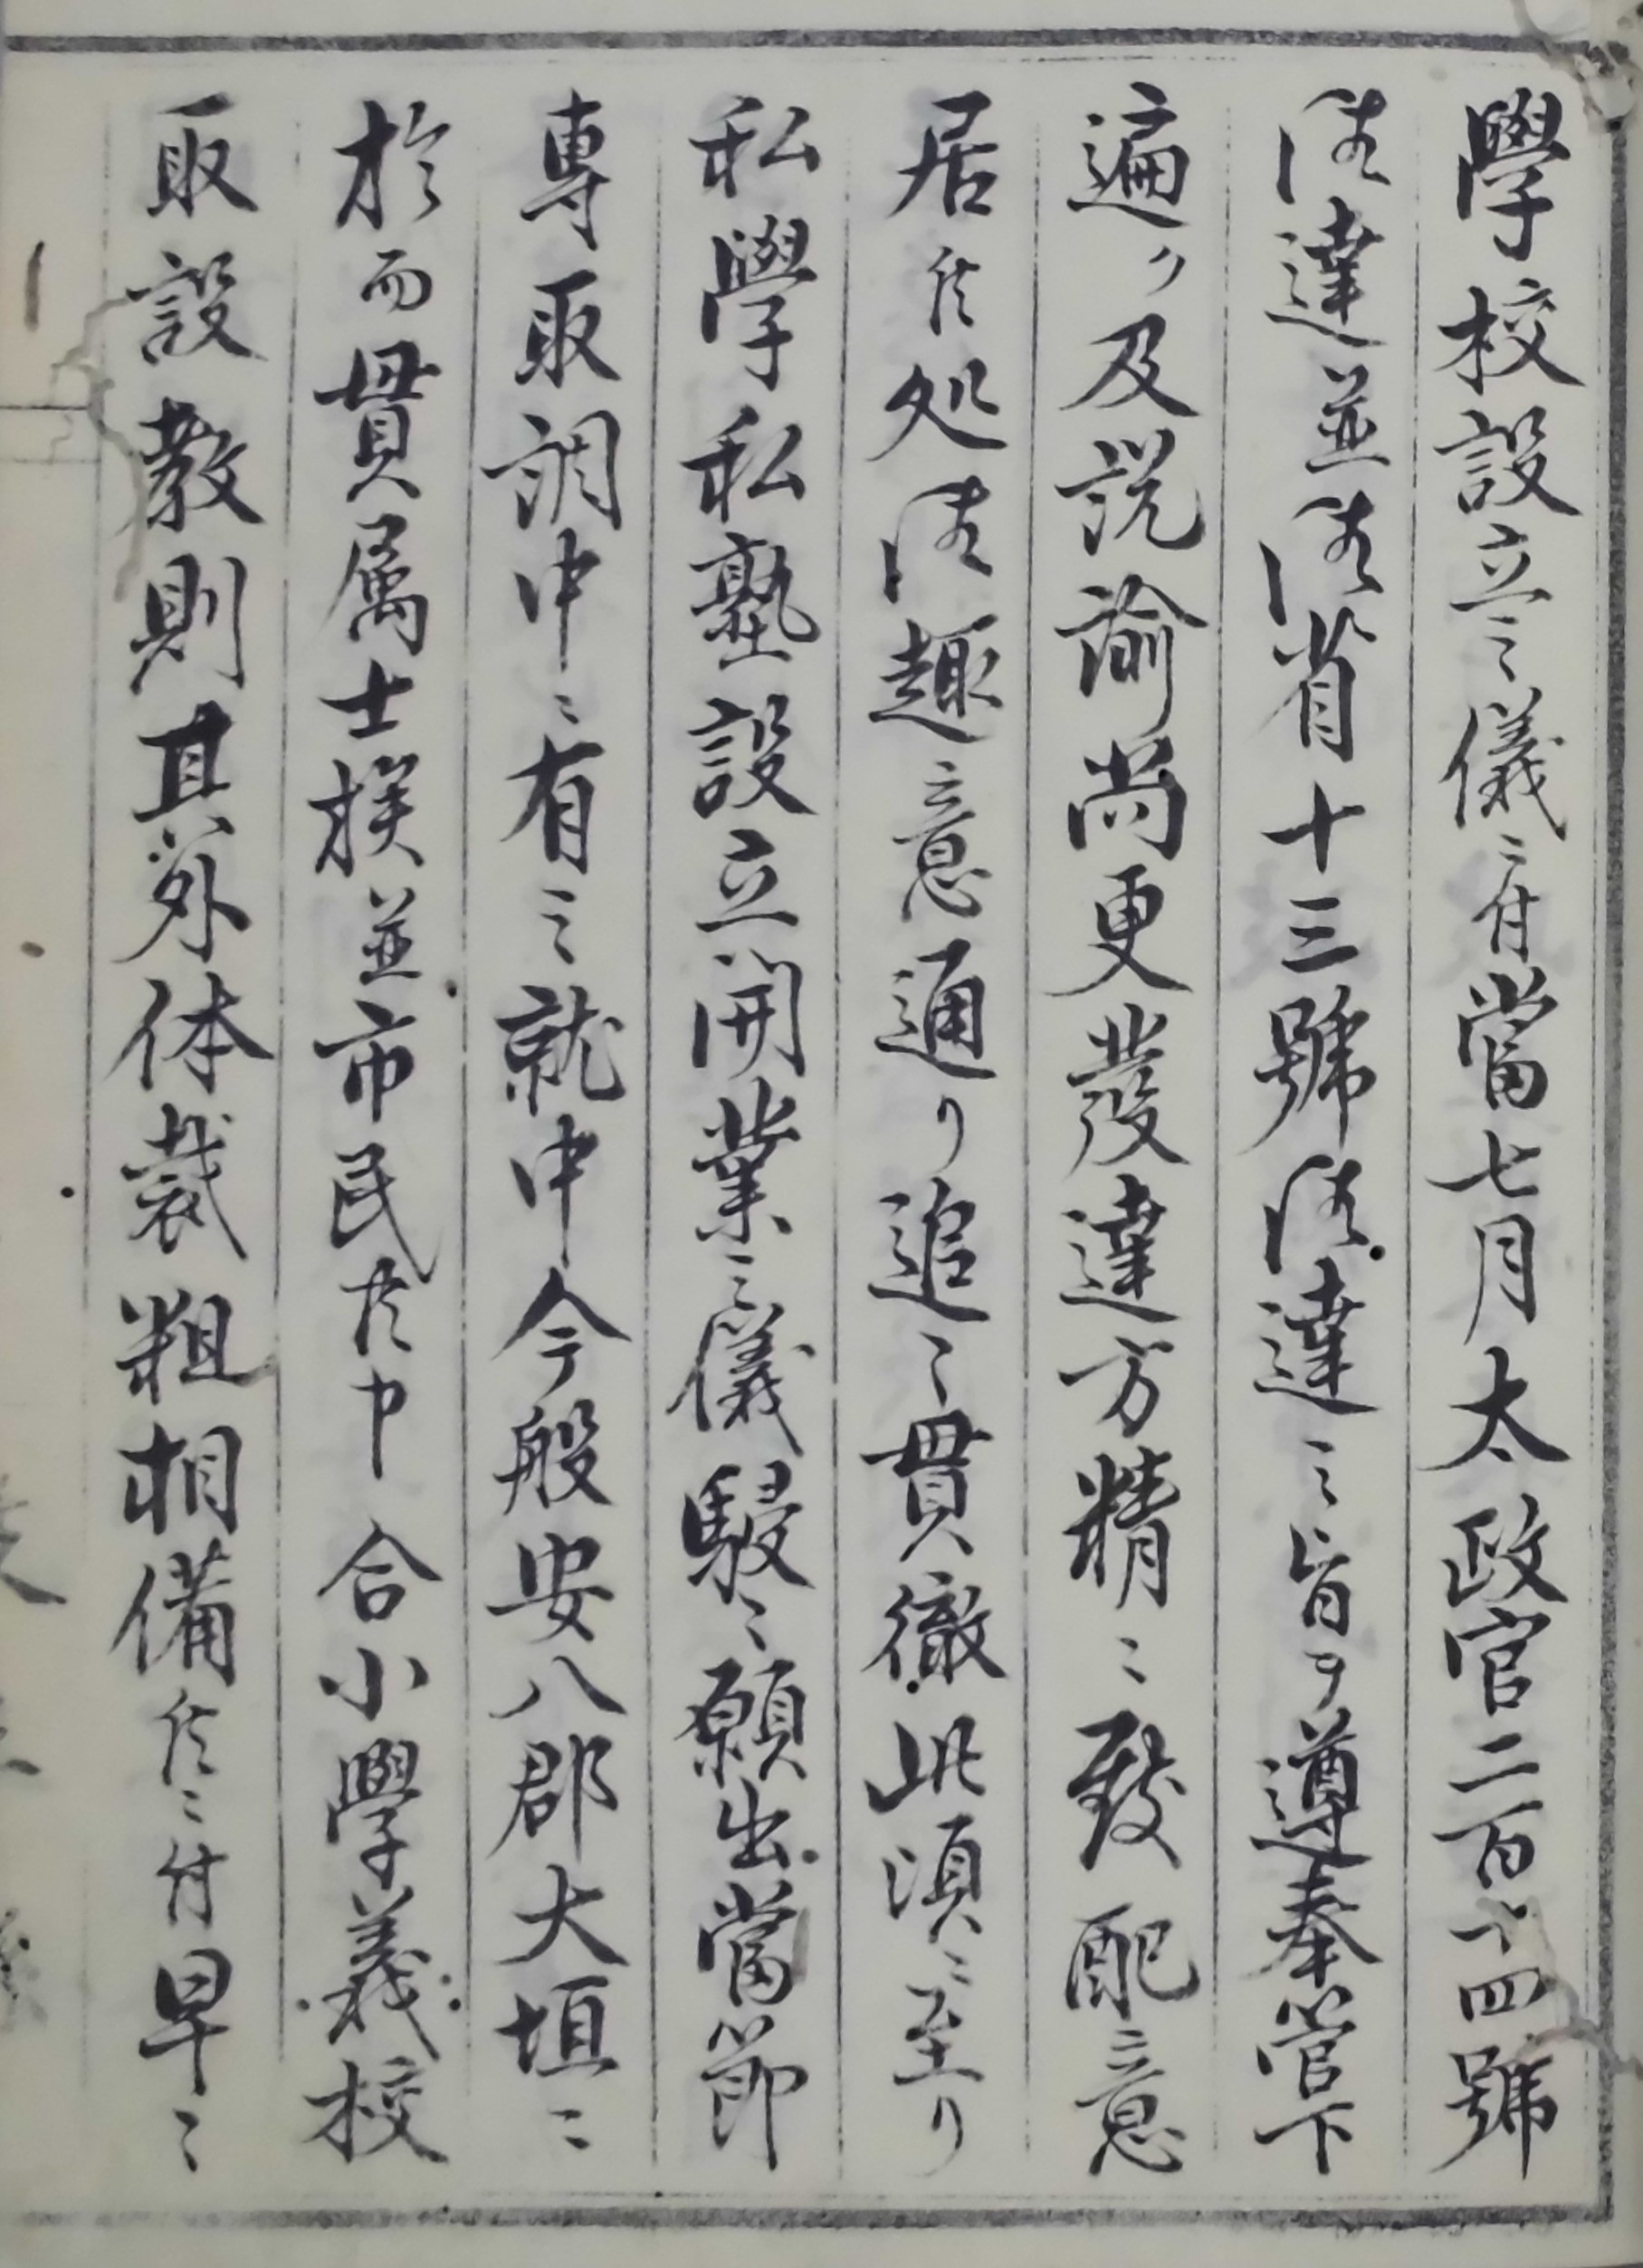 學校設立之儀ニ付當七月太政官二百十四號
御達並御省十三號御達之旨ヲ遵奉管下
遍ク及説諭尚更發達方精々致配意
居候処御趣意通り追々貫徹此頃ニ至り
私學私塾設立開業之儀駸々願出當節
專取調中ニ有之就中今般安八郡大垣ニ
於而貫属士族並市民共申合小學義校
取設教則其外体裁粗相備候ニ付早々